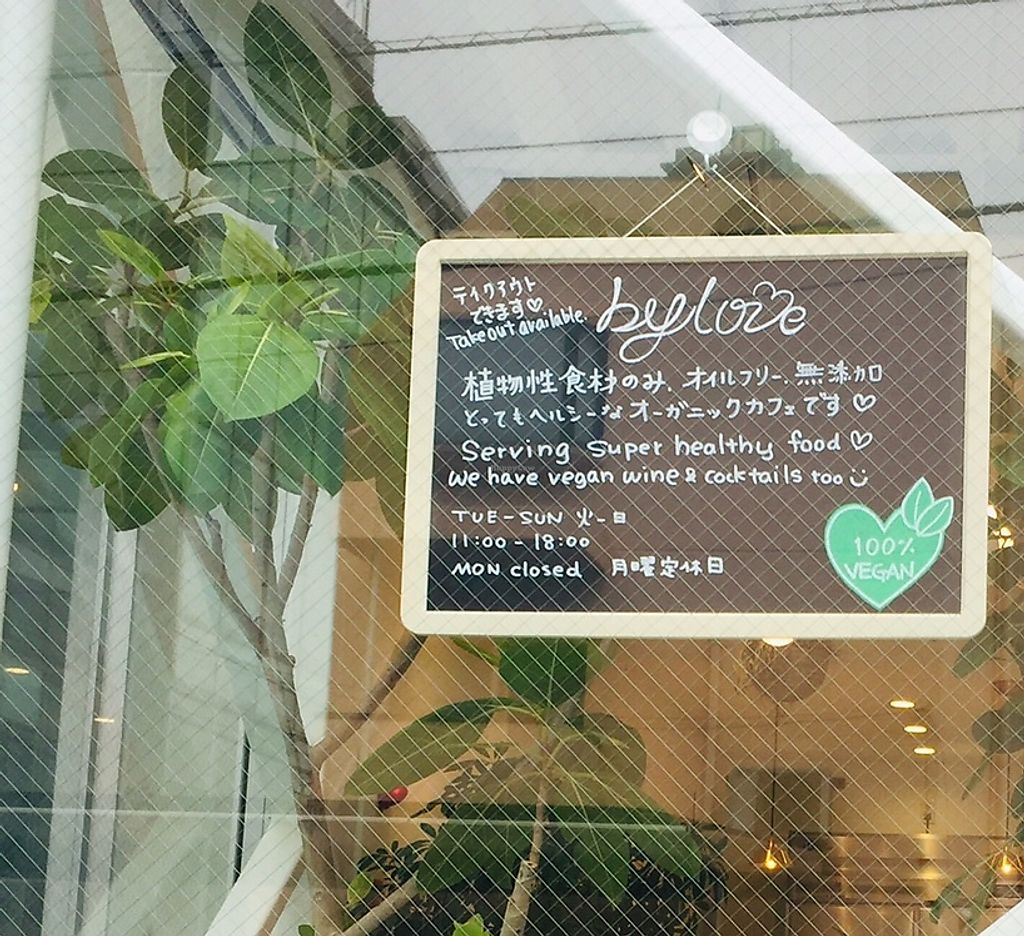 テイクアウト
できます♡
Take out available.
by love
植物性食材のみ、オイルフリー、無添加
とってもヘルシーなオーガニックカフェです♡
Serving super healthy food♡
We have vegan wine & cocktails too
TUE-SUN 火-日
11:00-18:00
MON closed 月曜定休日
100%
VEGAN